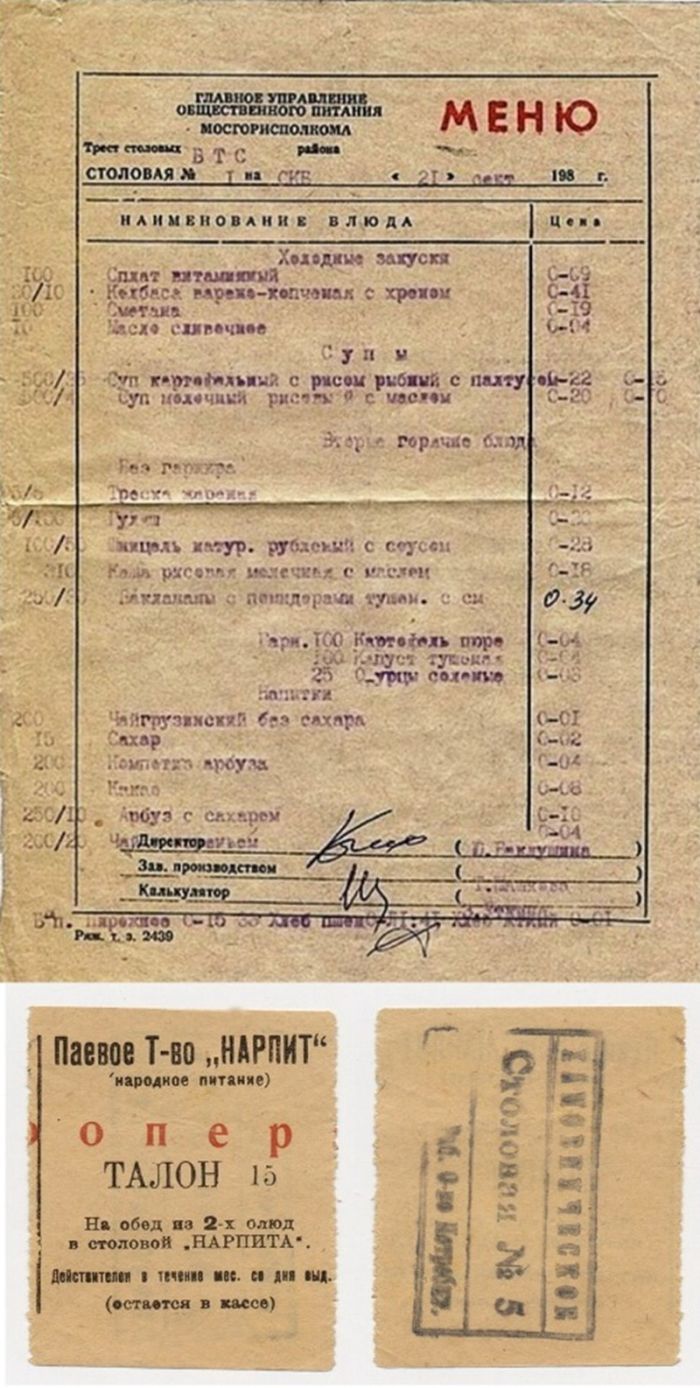 ГЛАВНОЕ УПРАВЛЕНИЕ
ОБЩЕСТВЕННОГО ПИТАНИЯ
МОСГОРИСПОЛКОМА
МЕНЮ
Трест столовых ВТС района
СТОЛОВАЯ № I на СКБ « 21 » сент 198 г.
НАИМЕНОВАНИЕ БЛЮДА Цена
Холодные закуски
100 Сплат витаминный 0-09
/10 Колбаса варено-копченая с хреном 0-41
100 Сметана 0-19
10 Масло сливочное 0-04
Супы
500/ Суп картофельный с рисом рыбный с палтусом 0-22
500/ Суп молочный рисовый с маслом 0-20
Вторые горячие блюда
Без гарнира
Треска жареная 0-12
/100 Гуляш
100/50 Шницель натур. рубленый с соусом 0-28
310 Каша рисовая молочная с маслом 0-18
250/ Баклажаны с помидорами тушен. с см 0.34
Гарн. 100 Картофель пюре 0-04
100 Капуст тушеная 0-04
25 О урцы соленые 0-03
Напитки
200 Чайгрузинский без сахара 0-01
15 Сахар 0-02
200 Компотиз арбуза 0-04
200 Какао 0-08
250/10 Арбуз с сахаром 0-10
200/25 Чай 0-04
Директор
Зав. производством
Калькулятор
Пирожное 0-15 Хлеб пшен 0-01
Ряж. т. з. 2439
Паевое Т-во „НАРПИТ“
(народное питание)
опер
ТАЛОН 15
На обед из 2-х блюд
в столовой „НАРПИТА“.
Действителен в течение мес. со дня выд.
(остается в кассе)
ХАМОВНИЧЕСКОЕ
Столовая № 5
О-во Потребит.